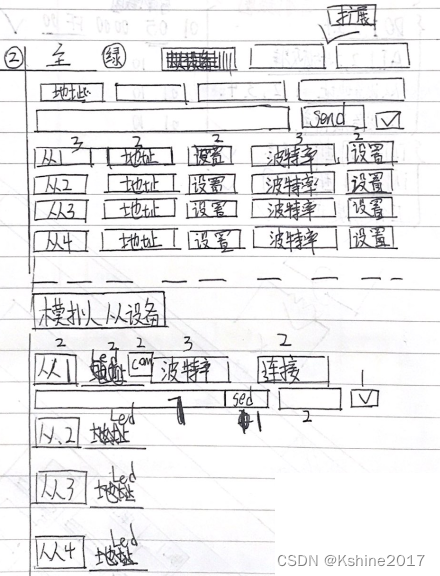 扩展
② 主 绿
地址
send
3 3 2 3 2
从1 地址 设置 波特率 设置
从2 地址 设置 波特率 设置
从3 地址 设置 波特率 设置
从4 地址 设置 波特率 设置
模拟从设备
2 2 2 3 2
从1 Led com 波特率 连接 1
sed
1 2
从2 Led
从3 Led
从4 Led
CSDN @Kshine2017